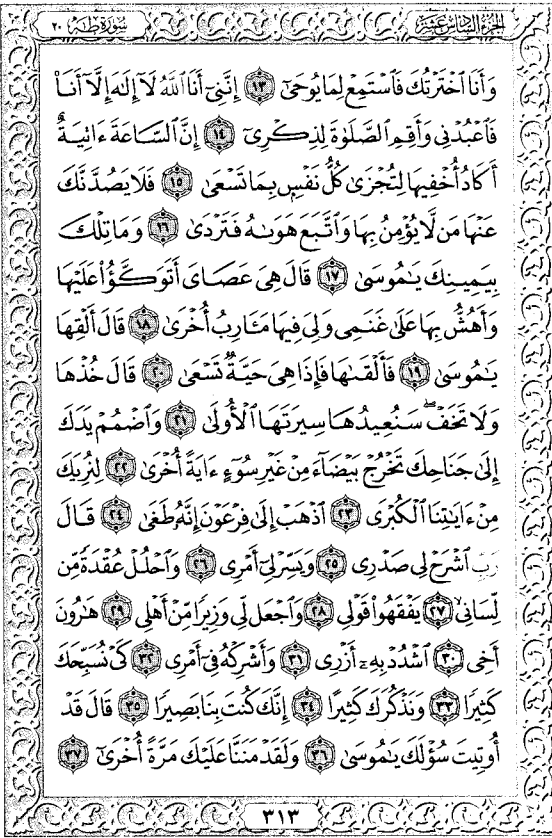 سورة طه ٢٠
الجزء السادس عشر
وَأَنَا ٱخْتَرْتُكَ فَٱسْتَمِعْ لِمَا يُوحَىٰٓ ١٣ إِنَّنِىٓ أَنَا ٱللَّهُ لَآ إِلَـٰهَ إِلَّآ أَنَا۠
فَٱعْبُدْنِى وَأَقِمِ ٱلصَّلَوٰةَ لِذِكْرِىٓ ١٤ إِنَّ ٱلسَّاعَةَ ءَاتِيَةٌ
أَكَادُ أُخْفِيهَا لِتُجْزَىٰ كُلُّ نَفْسٍۭ بِمَا تَسْعَىٰ ١٥ فَلَا يَصُدَّنَّكَ
عَنْهَا مَن لَّا يُؤْمِنُ بِهَا وَٱتَّبَعَ هَوَىٰهُ فَتَرْدَىٰ ١٦ وَمَا تِلْكَ
بِيَمِينِكَ يَـٰمُوسَىٰ ١٧ قَالَ هِىَ عَصَاىَ أَتَوَكَّؤُا۟ عَلَيْهَا
وَأَهُشُّ بِهَا عَلَىٰ غَنَمِى وَلِىَ فِيهَا مَـَٔارِبُ أُخْرَىٰ ١٨ قَالَ أَلْقِهَا
يَـٰمُوسَىٰ ١٩ فَأَلْقَىٰهَا فَإِذَا هِىَ حَيَّةٌ تَسْعَىٰ ٢٠ قَالَ خُذْهَا
وَلَا تَخَفْ ۖ سَنُعِيدُهَا سِيرَتَهَا ٱلْأُولَىٰ ٢١ وَٱضْمُمْ يَدَكَ
إِلَىٰ جَنَاحِكَ تَخْرُجْ بَيْضَآءَ مِنْ غَيْرِ سُوٓءٍ ءَايَةً أُخْرَىٰ ٢٢ لِنُرِيَكَ
مِنْ ءَايَـٰتِنَا ٱلْكُبْرَى ٢٣ ٱذْهَبْ إِلَىٰ فِرْعَوْنَ إِنَّهُۥ طَغَىٰ ٢٤ قَالَ
رَبِّ ٱشْرَحْ لِى صَدْرِى ٢٥ وَيَسِّرْ لِىٓ أَمْرِى ٢٦ وَٱحْلُلْ عُقْدَةً مِّن
لِّسَانِى ٢٧ يَفْقَهُوا۟ قَوْلِى ٢٨ وَٱجْعَل لِّى وَزِيرًا مِّنْ أَهْلِى ٢٩ هَـٰرُونَ
أَخِى ٣٠ ٱشْدُدْ بِهِۦٓ أَزْرِى ٣١ وَأَشْرِكْهُ فِىٓ أَمْرِى ٣٢ كَىْ نُسَبِّحَكَ
كَثِيرًا ٣٣ وَنَذْكُرَكَ كَثِيرًا ٣٤ إِنَّكَ كُنتَ بِنَا بَصِيرًا ٣٥ قَالَ قَدْ
أُوتِيتَ سُؤْلَكَ يَـٰمُوسَىٰ ٣٦ وَلَقَدْ مَنَنَّا عَلَيْكَ مَرَّةً أُخْرَىٰٓ ٣٧
٣١٣